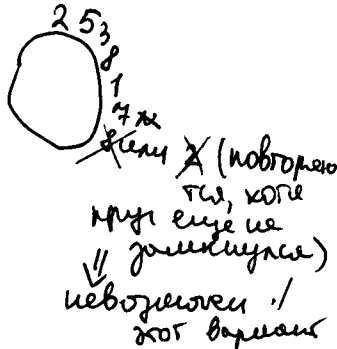 2 5 3
8
1
7
или 2 (повторяю
тся, хотя
круг еще не
замкнулся)
⇓
невозможен
этот вариант